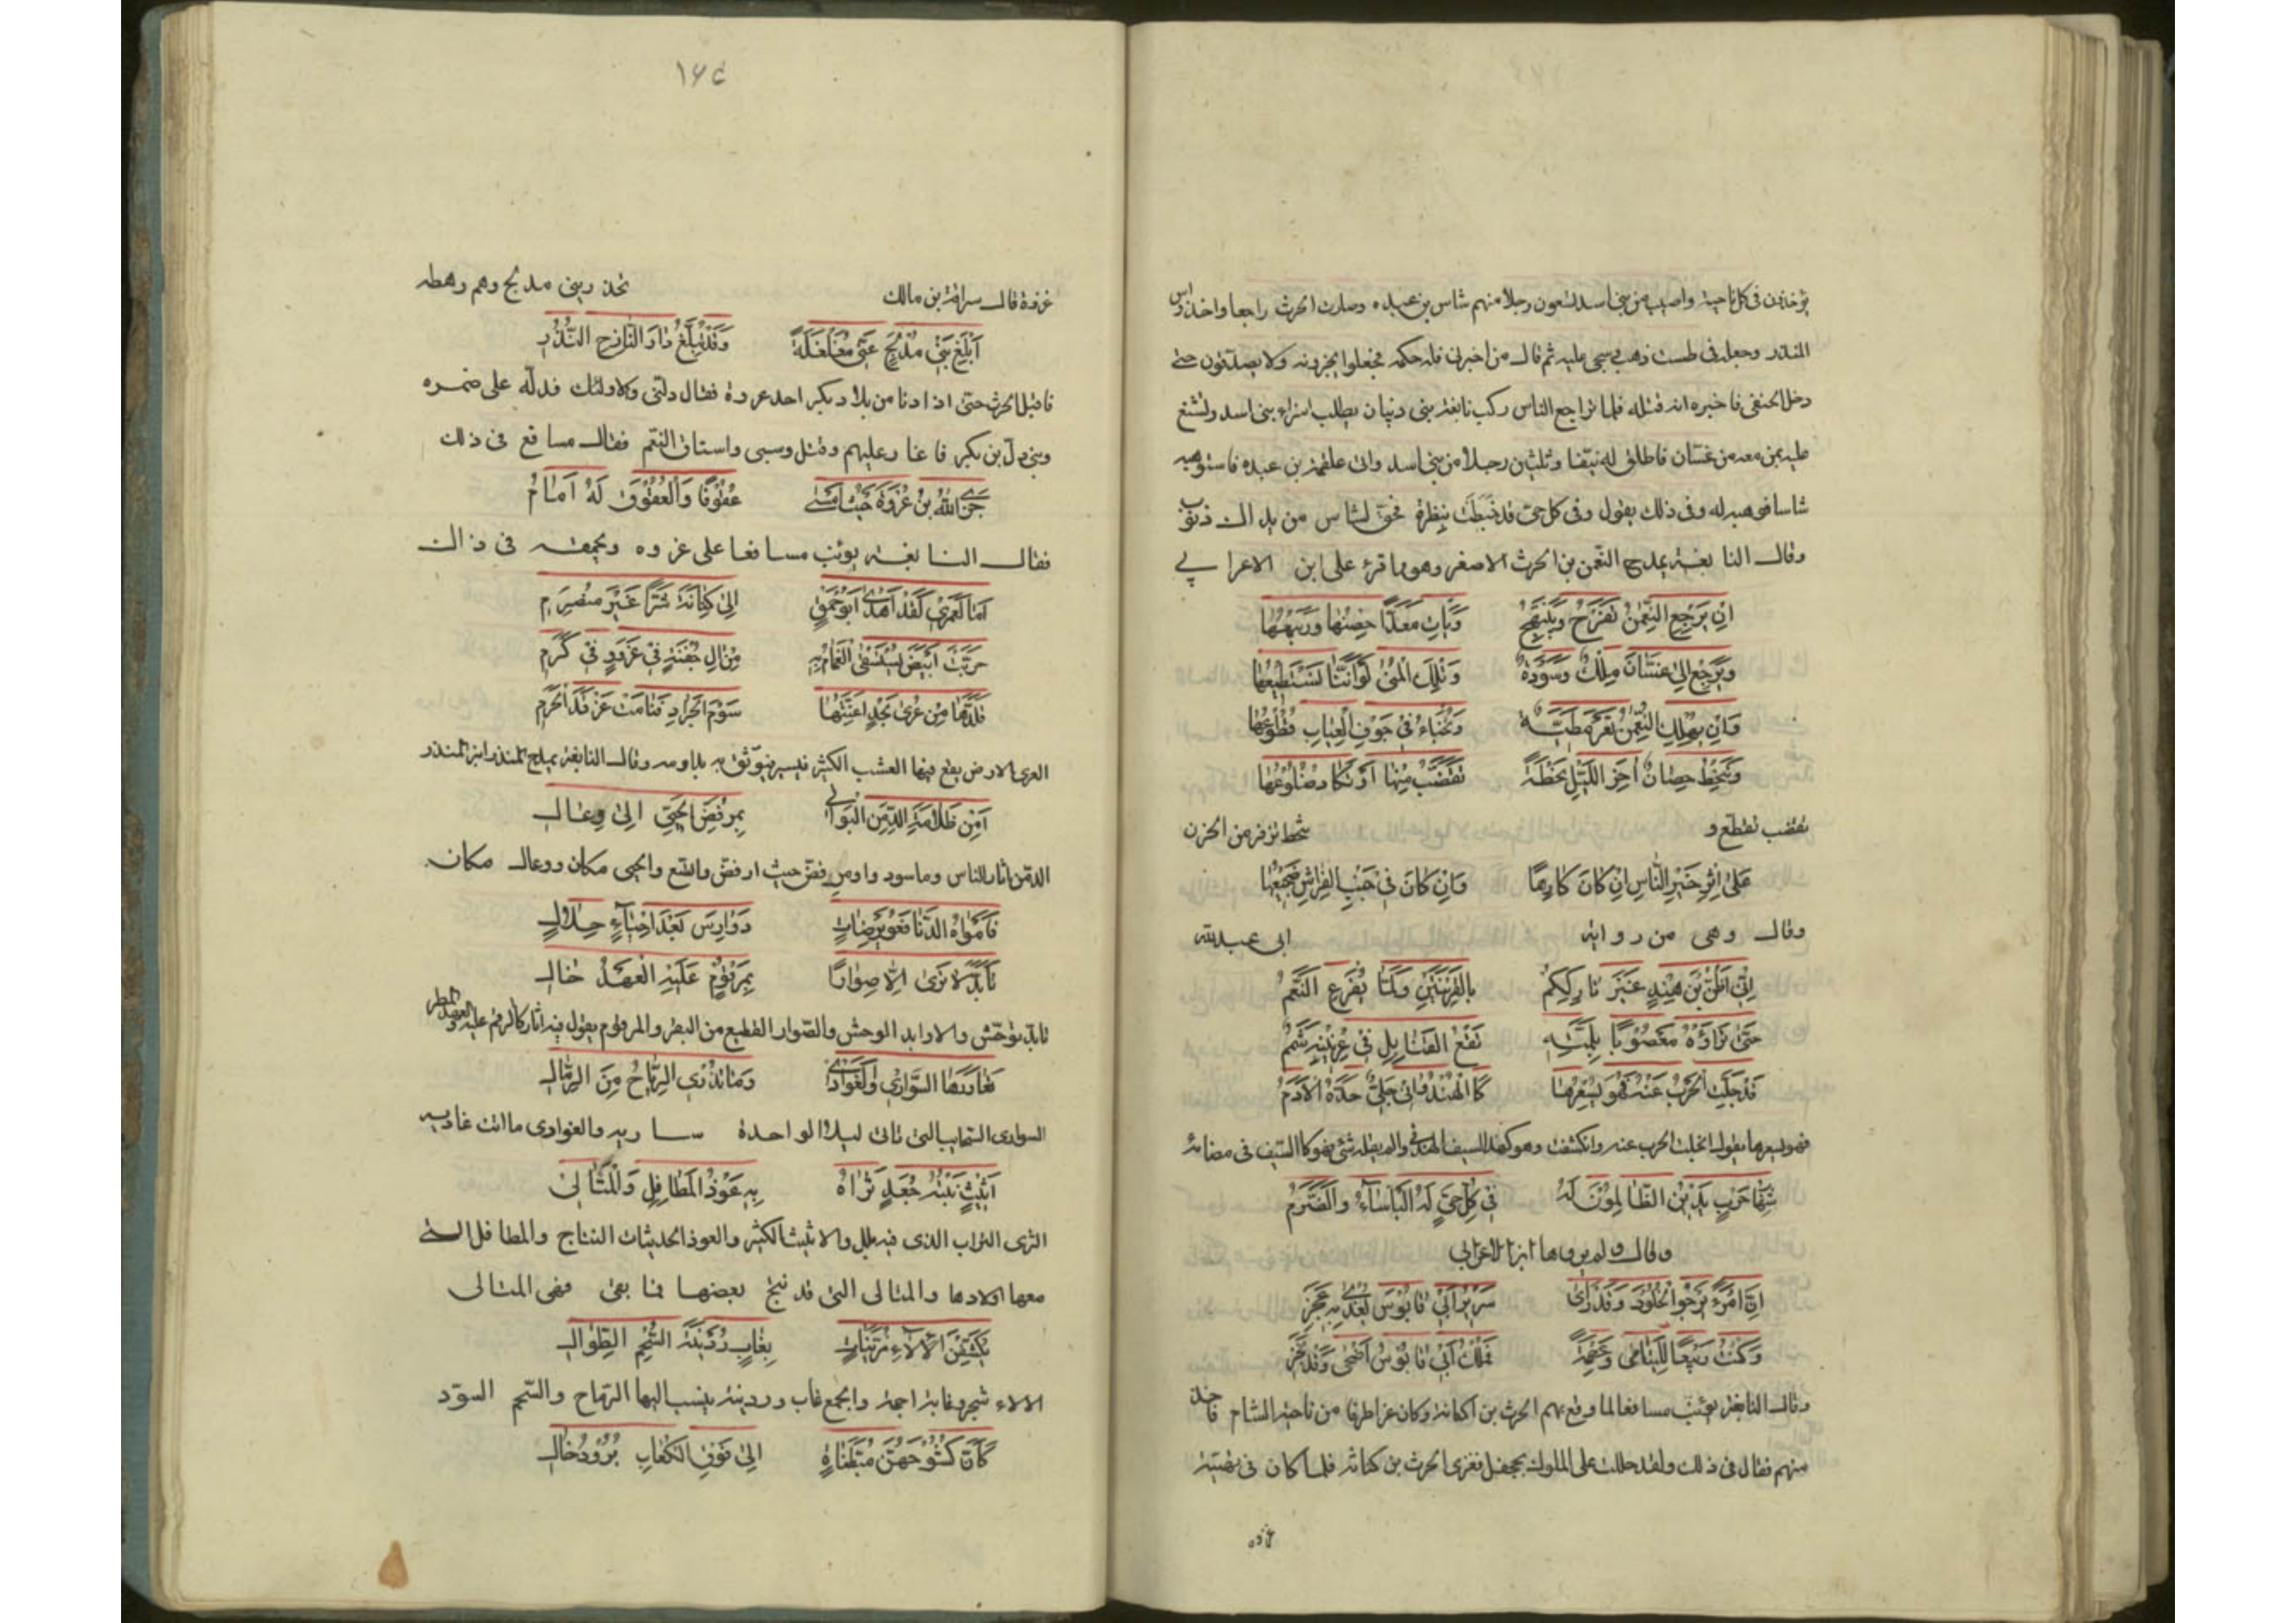 يؤخذون فى كل ناحية واصيب من بنى اسد تسعون رجلا منهم شاس بن عبده وصارت الحرث راجعا واخذ راس
المنذر وجعله فى طست ذهب سجى عليه ثم قال من اخبرنى فله حكمه فجعلوا يخبرونه ولا يصدقون حتى
دخل الحنفى فاخبره انه قتله فلما تراجع الناس ركب نابغة بنى ذبيان يطلب اسراء بنى اسد وتشفع
عليه بمن معه من غسان فاطلق له نيفا وثلثين رجلا من بنى اسد واتى علقمة بن عبده فاستوهبه
شاسا فوهبه له وفى ذلك يقول وفى كل حى قد خبطت بنظرة فحق لشاس من يداك ذنوب
وقال النابغة يمدح النعمن بن الحرث الاصغر وهو مما قرئ على ابن الاعرابي
اِن يَرجِعِ النُّعمٰنُ نَفرَح وَنَبتَهِج وَيَأتِ مَعَدًّا خِصبُها وَرَبيعُها
وَيَرجِع اِلى غَسّانَ مُلكٌ وَسُؤدَدٌ وَتِلكَ المُنى لَو اَنَّنا نَستَطيعُها
وَاِن يَهلِكِ النُّعمٰنُ تُعرَ مَطِيَّةٌ وَتُخبَاء فى جَوفِ العِيابِ قُطوعُها
وَتَنحِطْ حَصانٌ آخِرَ اللَّيلِ نَحطَةً تَقَضَّبُ مِنها اَو تَكادُ ضُلوعُها
تقضب تقطع و تنحط تزفر من الحزن
عَلى اِثرِ خَيرِ النّاسِ اِن كانَ كارِهًا وَاِن كانَ فى جَنبِ الفِراشِ ضَجيعُها
وقال وهى من رواية ابى عبدالله
اِنّى اَظُنُّ بنَ هِندٍ غَيرَ تارِكِكُم بِالقَريَتَينِ وَلَمّا يُفزَعِ النَّعَمُ
حَتّى تَراوَهُ مَعصُوبًا بِلِمَّتِهِ نَقعُ القَنابِلِ فى عِرنينِهِ شَمَمُ
قَد جَلَّتِ الحَربُ عَنهُ فَهوَ يُسعِرُها كَالهُندُوانى جَلى حَدَّهُ الاَدَمُ
فهو يسعرها يقول انجلت الحرب عنه وانكشفت وهو كهذا السيف الهندى فهو كالسيف فى مضائه
شِهابُ حَربٍ يَدينُ الظّالِمونَ لَهُ فى كُلِّ حَىٍّ لَهُ البَأساءُ والضَّرَمُ
وقال ولم يروها ابن الاعرابى
اِنَّ امرَءً يَرجُو الخُلودَ وَقَد رَأى سَريرَ اَبى قابُوسَ يُغدى بِهِ عَجَز
وَكُنتَ رَبيعًا لِليَتامى وَعِصمَةً فَمُلكُ اَبى قابُوسَ اَضحى وَقَد نَجَز
وقال النابغة يؤنب مسافعا لما وقع بهم الحرث بن كنانة وكان غزا طرفا من ناحية الشام فاخذ
منهم فقال فى ذلك ولقد حللت على الملوك بجحفل فغزى الحرث بن كنانة فلما كان فى بعض
غزوه
١٦٤
غزوة قال سراقة بن مالك نحذر بنى مدلج وهم رهطه
اَبلِغ بَنى مُدلِجٍ عَنّى مُغَلغَلَةً وَقَد تُبَلَّغُ دارَ النّازِحِ النُّذُرُ
فاقبل الحرث حتى اذا دنا من بلاد بكر احد عروة فقال دلنى ولا ولئك فدله على ضمره
وبنى دل بن بكر فاغار عليهم وقتل وسبى واستاق النعم فقال مسافع فى ذلك
جَزى اللهُ بنَ عُروَةَ حَيثُ اَمسى عُقوقًا وَالعُقوقُ لَهُ اَثامُ
فقال النابغة يؤنب مسافعا على عروه ويحمقه فى ذالك
اَما لَعَمرى لَقَد اَهدى اَبو حُمَقٍ اِلى كِنانَةَ شَرًّا غَيرَ مُنصَرِمِ
حَرّبتَ اَبيَضَ يُستَسقى الغَمامُ بِهِ مِن آلِ جَفنَةَ فى عِزٍّ وَفى كَرَمِ
العرى الارض يقع فيها العشب الكثير وقال النابغة يمدح المنذر ابن المنذر
اَمِن ظَلّامَةَ الدِّمَنِ البَوالى بِمُرفَضِّ الحُبَىِّ اِلى وِعالِ
الدمن اثار الناس وما سودوا ومرفض حيث ارفض واتسع والحبى مكان ووعال مكان
فَاَمواهُ الدَّنا فَعُوَيرِضاتٍ دَوارِسَ بَعدَ اَحياءٍ حِلالِ
تَأَبَّدَ لا تَرى اِلّا صِوارًا بِمَرقُومٍ عَلَيهِ العَهدُ خالِ
تابد توحش والاوابد الوحش والصوار القطيع من البقر والمرقوم يقول فيه اثار كالرقم عليه والعهد المطر
تَعاوَرَها السَّوارى وَالغَوادى وَما تُذرى الرِّياحُ مِنَ الرِّمالِ
السوارى السحاب التى تاتى ليلا الواحدة سارية والغوادى ما اتت غادية
اَثيثٌ نَبتُهُ جَعدٌ ثَراهُ بِهِ عُوذُ المَطافِلِ وَالمَتالى
الثرى التراب الذى فيه بلل والاثيث الكثير والعوذ الحديثات النتاج والمطافل التى
معها اولادها والمتالى التى قد نتج بعضها فما بقى فهى المتالى
يُكَشِّفنَ الاَلاءَ مُزَيَّناتٍ بِغابِ رُدَينَةَ السُّحمِ الطِّوالِ
الالاء شجر وغابة اجمة والجمع غاب وردينة ينسب اليها الرماح والسحم السود
كَأَنَّ كُشوحَهُنَّ مُبَطَّناتٍ اِلى فَوقِ الكِعابِ بُرودُ خالِ